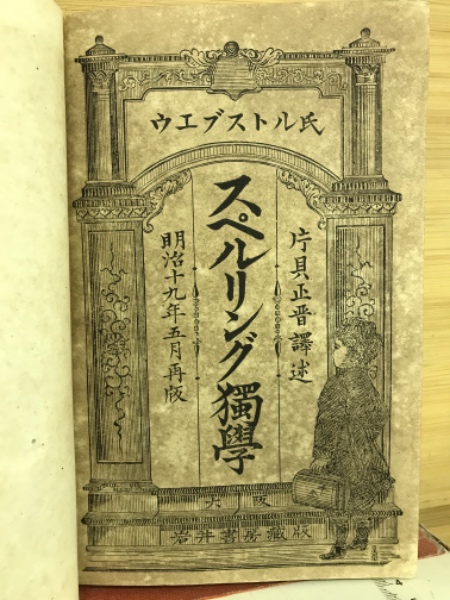 ウエブストル氏
片貝正晋譯述
スペルリング獨學
明治十九年五月再版
大阪
岩井書房藏版